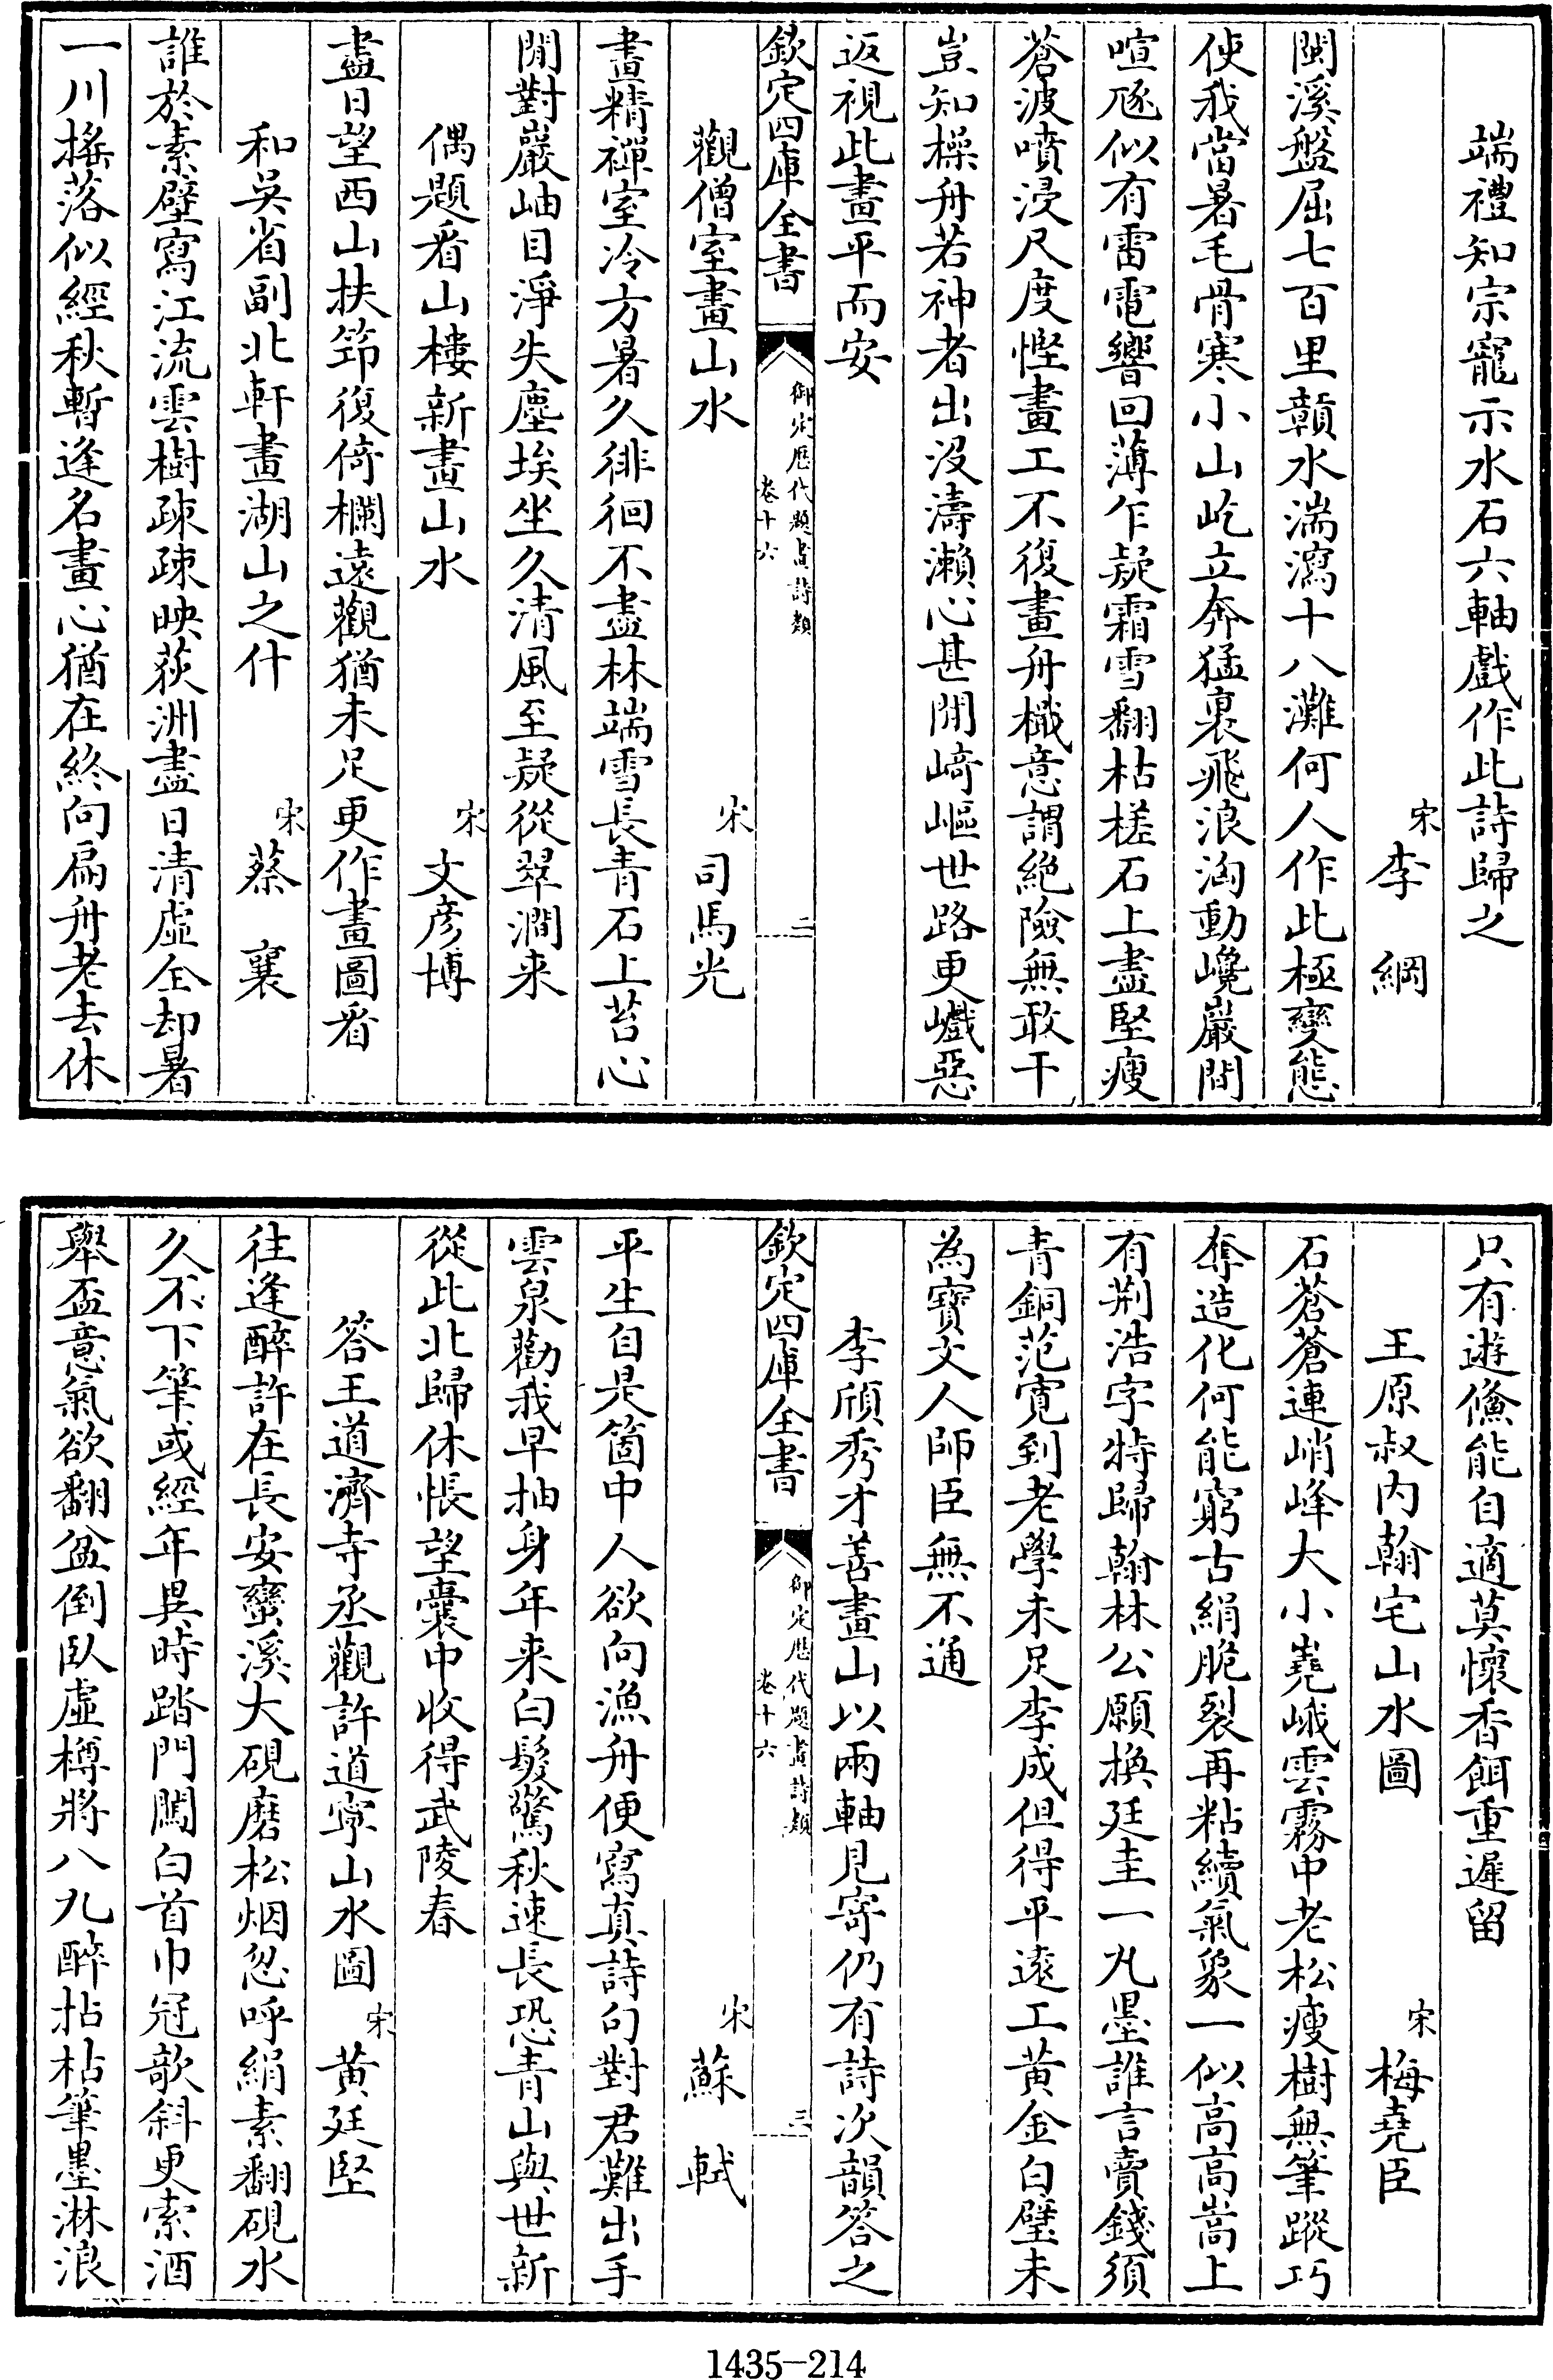 端禮知宗寵示水石六軸戲作此詩歸之
宋 李綱
閩溪盤屈七百里贑水湍瀉十八灘何人作此極變態
使我當暑毛骨寒小山屹立奔猛裏飛浪洶動巉巖間
喧豗似有雷電響回薄乍疑霜雪翻枯槎石上盡堅瘦
蒼波噴浸尺度慳畫工不復畫舟檝意謂絶險無敢干
豈知操舟若神者出沒濤瀨心甚閒崎嶇世路更巇惡
返視此畫平而安
欽定四庫全書
御定歷代題畫詩類
卷十六
二
觀僧室畫山水
宋 司馬光
畫精禪室冷方暑久徘徊不盡林端雪長青石上苔心
閒對巖岫目淨失塵埃坐久清風至疑從翠澗來
偶題看山樓新畫山水
宋 文彦博
盡日望西山扶筇復倚欄遠觀猶未足更作畫圖看
和吳省副北軒畫湖山之什
宋 蔡襄
誰於素壁寫江流雲樹疎疎映荻洲盡日清虛全却暑
一川搖落似經秋暫逢名畫心猶在終向扁舟老去休
只有遊鯈能自適莫懷香餌重遲留
王原叔内翰宅山水圖
宋 梅堯臣
石蒼蒼連峭峰大小嶤峨雲霧中老松瘦樹無筆蹤巧
奪造化何能窮古絹脆裂再粘續氣象一似高高嵩上
有荆浩字特歸翰林公願換廷圭一丸墨誰言賣錢須
青銅范寛到老學未足李成但得平遠工黄金白璧未
為寳丈人師臣無不通
李頎秀才善畫山以兩軸見寄仍有詩次韻答之
欽定四庫全書
御定歷代題畫詩類
卷十六
三
宋 蘇軾
平生自是箇中人欲向漁舟便寫真詩句對君難出手
雲泉勸我早抽身年來白髮驚秋速長恐青山與世新
從此北歸休悵望囊中收得武陵春
答王道濟寺丞觀許道寧山水圖
宋 黄廷堅
往逢醉許在長安蠻溪大硯磨松烟忽呼絹素翻硯水
久不下筆或經年異時踏門闖白首巾冠欹斜更索酒
舉盃意氣欲翻盆倒臥虛樽將八九醉拈枯筆墨淋浪
1435-214